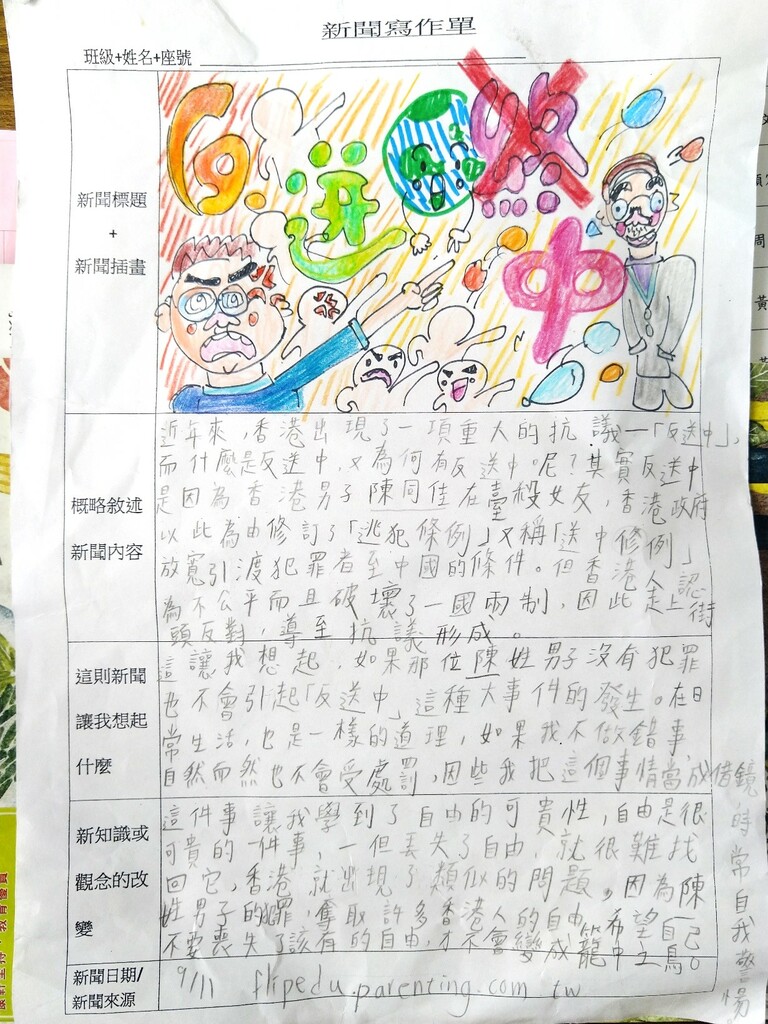 新聞寫作單
班級+姓名+座號
新聞標題
+
新聞插畫
反送中
概略敘述
新聞內容
近年來,香港出現了一項重大的抗議—「反送中」,
而什麼是反送中,又為何有反送中呢?其實反送中
是因為香港男子陳同佳在臺殺女友,香港政府
以此為由修訂了「逃犯條例」又稱「送中修例」
放寬引渡犯罪者至中國的條件。但香港人認
為不公平而且破壞了一國兩制,因此走上街
頭反對,導至抗議形成。
這則新聞
讓我想起
什麼
這讓我想起,如果那位陳姓男子沒有犯罪
也不會引起「反送中」這種大事件的發生。在日
常生活,也是一樣的道理,如果我不做錯事,
自然而然也不會受處罰,因些我把這個事情當成借鏡
時常自我警惕。
新知識或
觀念的改
變
這件事讓我學到了自由的可貴性,自由是很
可貴的一件事,一但丟失了自由,就很難找
回它,香港就出現了類似的問題。因為陳
姓男子的犯罪,奪取許多香港人的自由,希望自己
不要喪失了該有的自由,才不會變成籠中之鳥。
新聞日期/
新聞來源
9/11 flipedu.parenting.com.tw